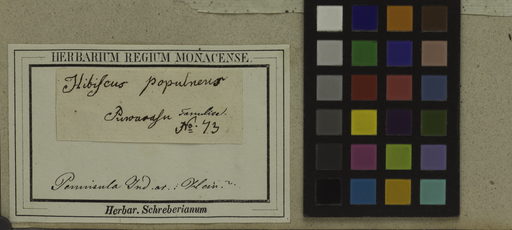 HERBARIUM REGIUM MONACENSE.
Hibiscus populneus
Puwarasu Tamulice.
No. 73
Peninsula Ind. or.: Klein.
Herbar. Schreberianum